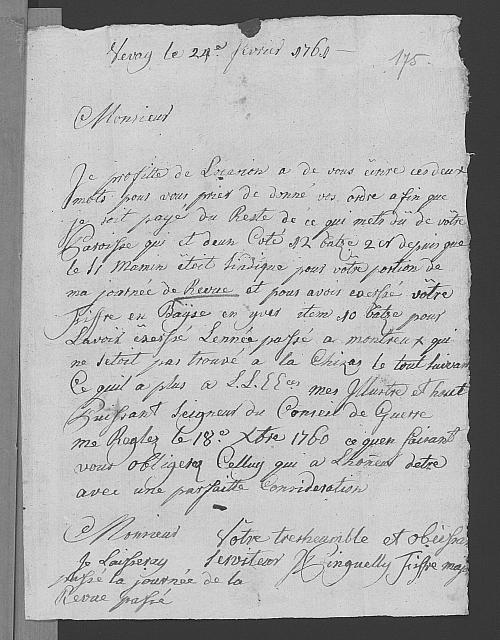 Vevay le 24.e fevrier 1761
175.
Monsieur
Je profitte de Locasion a de vous ecrire ces deux
mots pour vous prier de donné vos ordre afin que
je soit payé du Reste de ce qui mets dû de vôtre
Paroisse qui et deun Coté 12 batze 2 cr depuis que
le Sr Mamin êtoit Sindique pour vôtre portion de
ma journée de Revue et pour avoir exersé vôtre
fiffre en Baÿse en yver item 10 batze pour
Lavoir exersé Lennée passé a montreux qui
ne setoit pas trouvé a la le tout suivant
Ce quil a plus a L.L.EE.ces mes Illustre et haut
Puissant Seigneur du Conseil de Guerre
me Reglez le 18.e Xbre 1760 ce quen faisant
vous obligerez Celluy qui a Lhoneur detre
avec une parfaitte Consideration
Monsieur Vôtre tresheumble et obeissa
Je Laisseray Serviteur Cinguelly fiffre majo
passé la journée de la
Revue passé